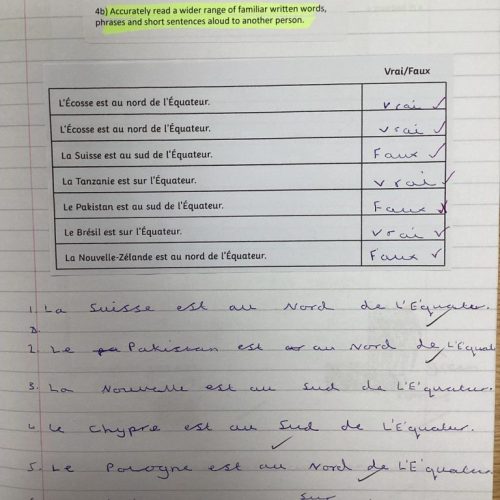 4b) Accurately read a wider range of familiar written words,
phrases and short sentences aloud to another person.
Vrai/Faux
L'Écosse est au nord de l'Équateur. vrai
L'Écosse est au nord de l'Équateur. vrai
La Suisse est au sud de l'Équateur. Faux
La Tanzanie est sur l'Équateur. vrai
Le Pakistan est au sud de l'Équateur. Faux
Le Brésil est sur l'Équateur. vrai
La Nouvelle-Zélande est au nord de l'Équateur. Faux
1. La Suisse est au Nord de L'Equater.
2. Le Pakistan est au Nord de L'Equat
3. La Nouvelle est au Sud de L'E'quateur.
4. Le Chypre est au Sud de L'Equateur.
5. Le Pologne est au Nord de L'E'quateur
sur